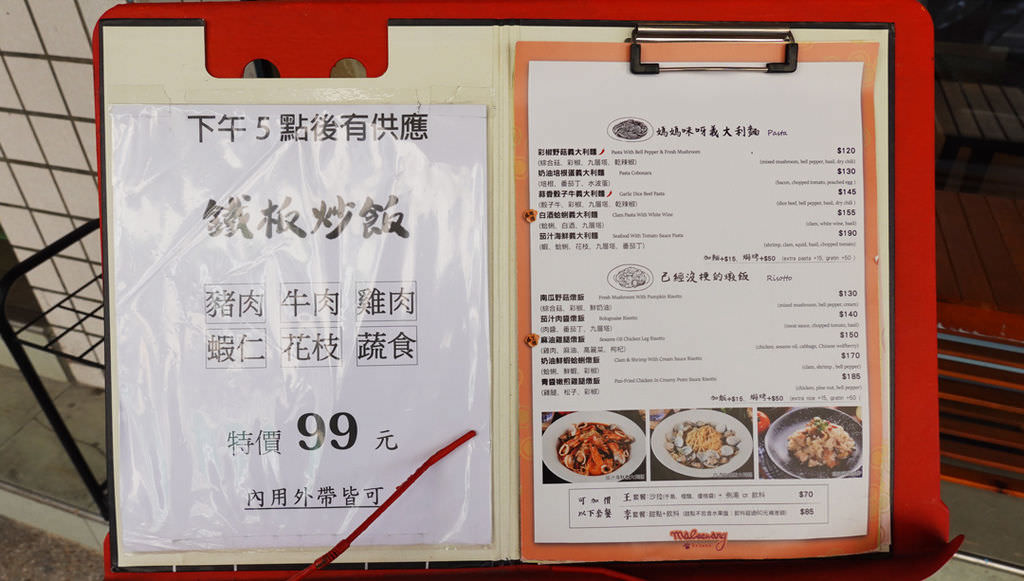 下午5點後有供應
鐵板炒飯
豬肉 牛肉 雞肉
蝦仁 花枝 蔬食
特價 99 元
內用外帶皆可
媽媽咪呀義大利麵 Pasta
彩椒野菇義大利麵 Pasta With Bell Pepper & Fresh Mushroom $120
(綜合菇、彩椒、九層塔、乾辣椒) (mixed mushroom, bell pepper, basil, dry chili)
奶油培根蛋義大利麵 Pasta Cobonara $130
(培根、番茄丁、水波蛋) (bacon, chopped tomato, poached egg)
蒜香骰子牛義大利麵 Garlic Dice Beef Pasta $145
(骰子牛、彩椒、九層塔、乾辣椒) (dice beef, bell pepper, basil, dry chili)
白酒蛤蜊義大利麵 Clam Pasta With White Wine $155
(蛤蜊、白酒、九層塔) (clam, white wine, basil)
茄汁海鮮義大利麵 Seafood With Tomato Sauce Pasta $190
(蝦、蛤蜊、花枝、九層塔、番茄丁) (shrimp, clam, squid, basil, chopped tomato)
加麵+$15、焗烤+$50 (extra pasta +15, gratin +50)
已經沒梗的燉飯 Risotto
南瓜野菇燉飯 Fresh Mushroom With Pumpkin Risotto $130
(綜合菇、彩椒、鮮奶油) (mixed mushroom, bell pepper, cream)
茄汁肉醬燉飯 Bolognaise Risotto $140
(肉醬、番茄丁、九層塔) (meat sauce, chopped tomato, basil)
麻油雞腿燉飯 Sesame Oil Chicken Leg Risotto $150
(雞肉、麻油、高麗菜、枸杞) (chicken, sesame oil, cabbage, Chinese wolfberry)
奶油鮮蝦蛤蜊燉飯 Clam & Shrimp With Cream Sauce Risotto $170
(蛤蜊、鮮蝦、彩椒) (clam, shrimp, bell pepper)
青醬嫩煎雞腿燉飯 Pan-Fried Chicken In Creamy Pesto Sauce Risotto $185
(雞腿、松子、彩椒) (chicken, pine nut, bell pepper)
加飯+$15、焗烤+$50 (extra rice +15, gratin +50)
可加價 王套餐:沙拉(千島、檸醋、優格醬) + 例湯 or 飲料 $70
以下套餐 李套餐:甜點+飲料 $85